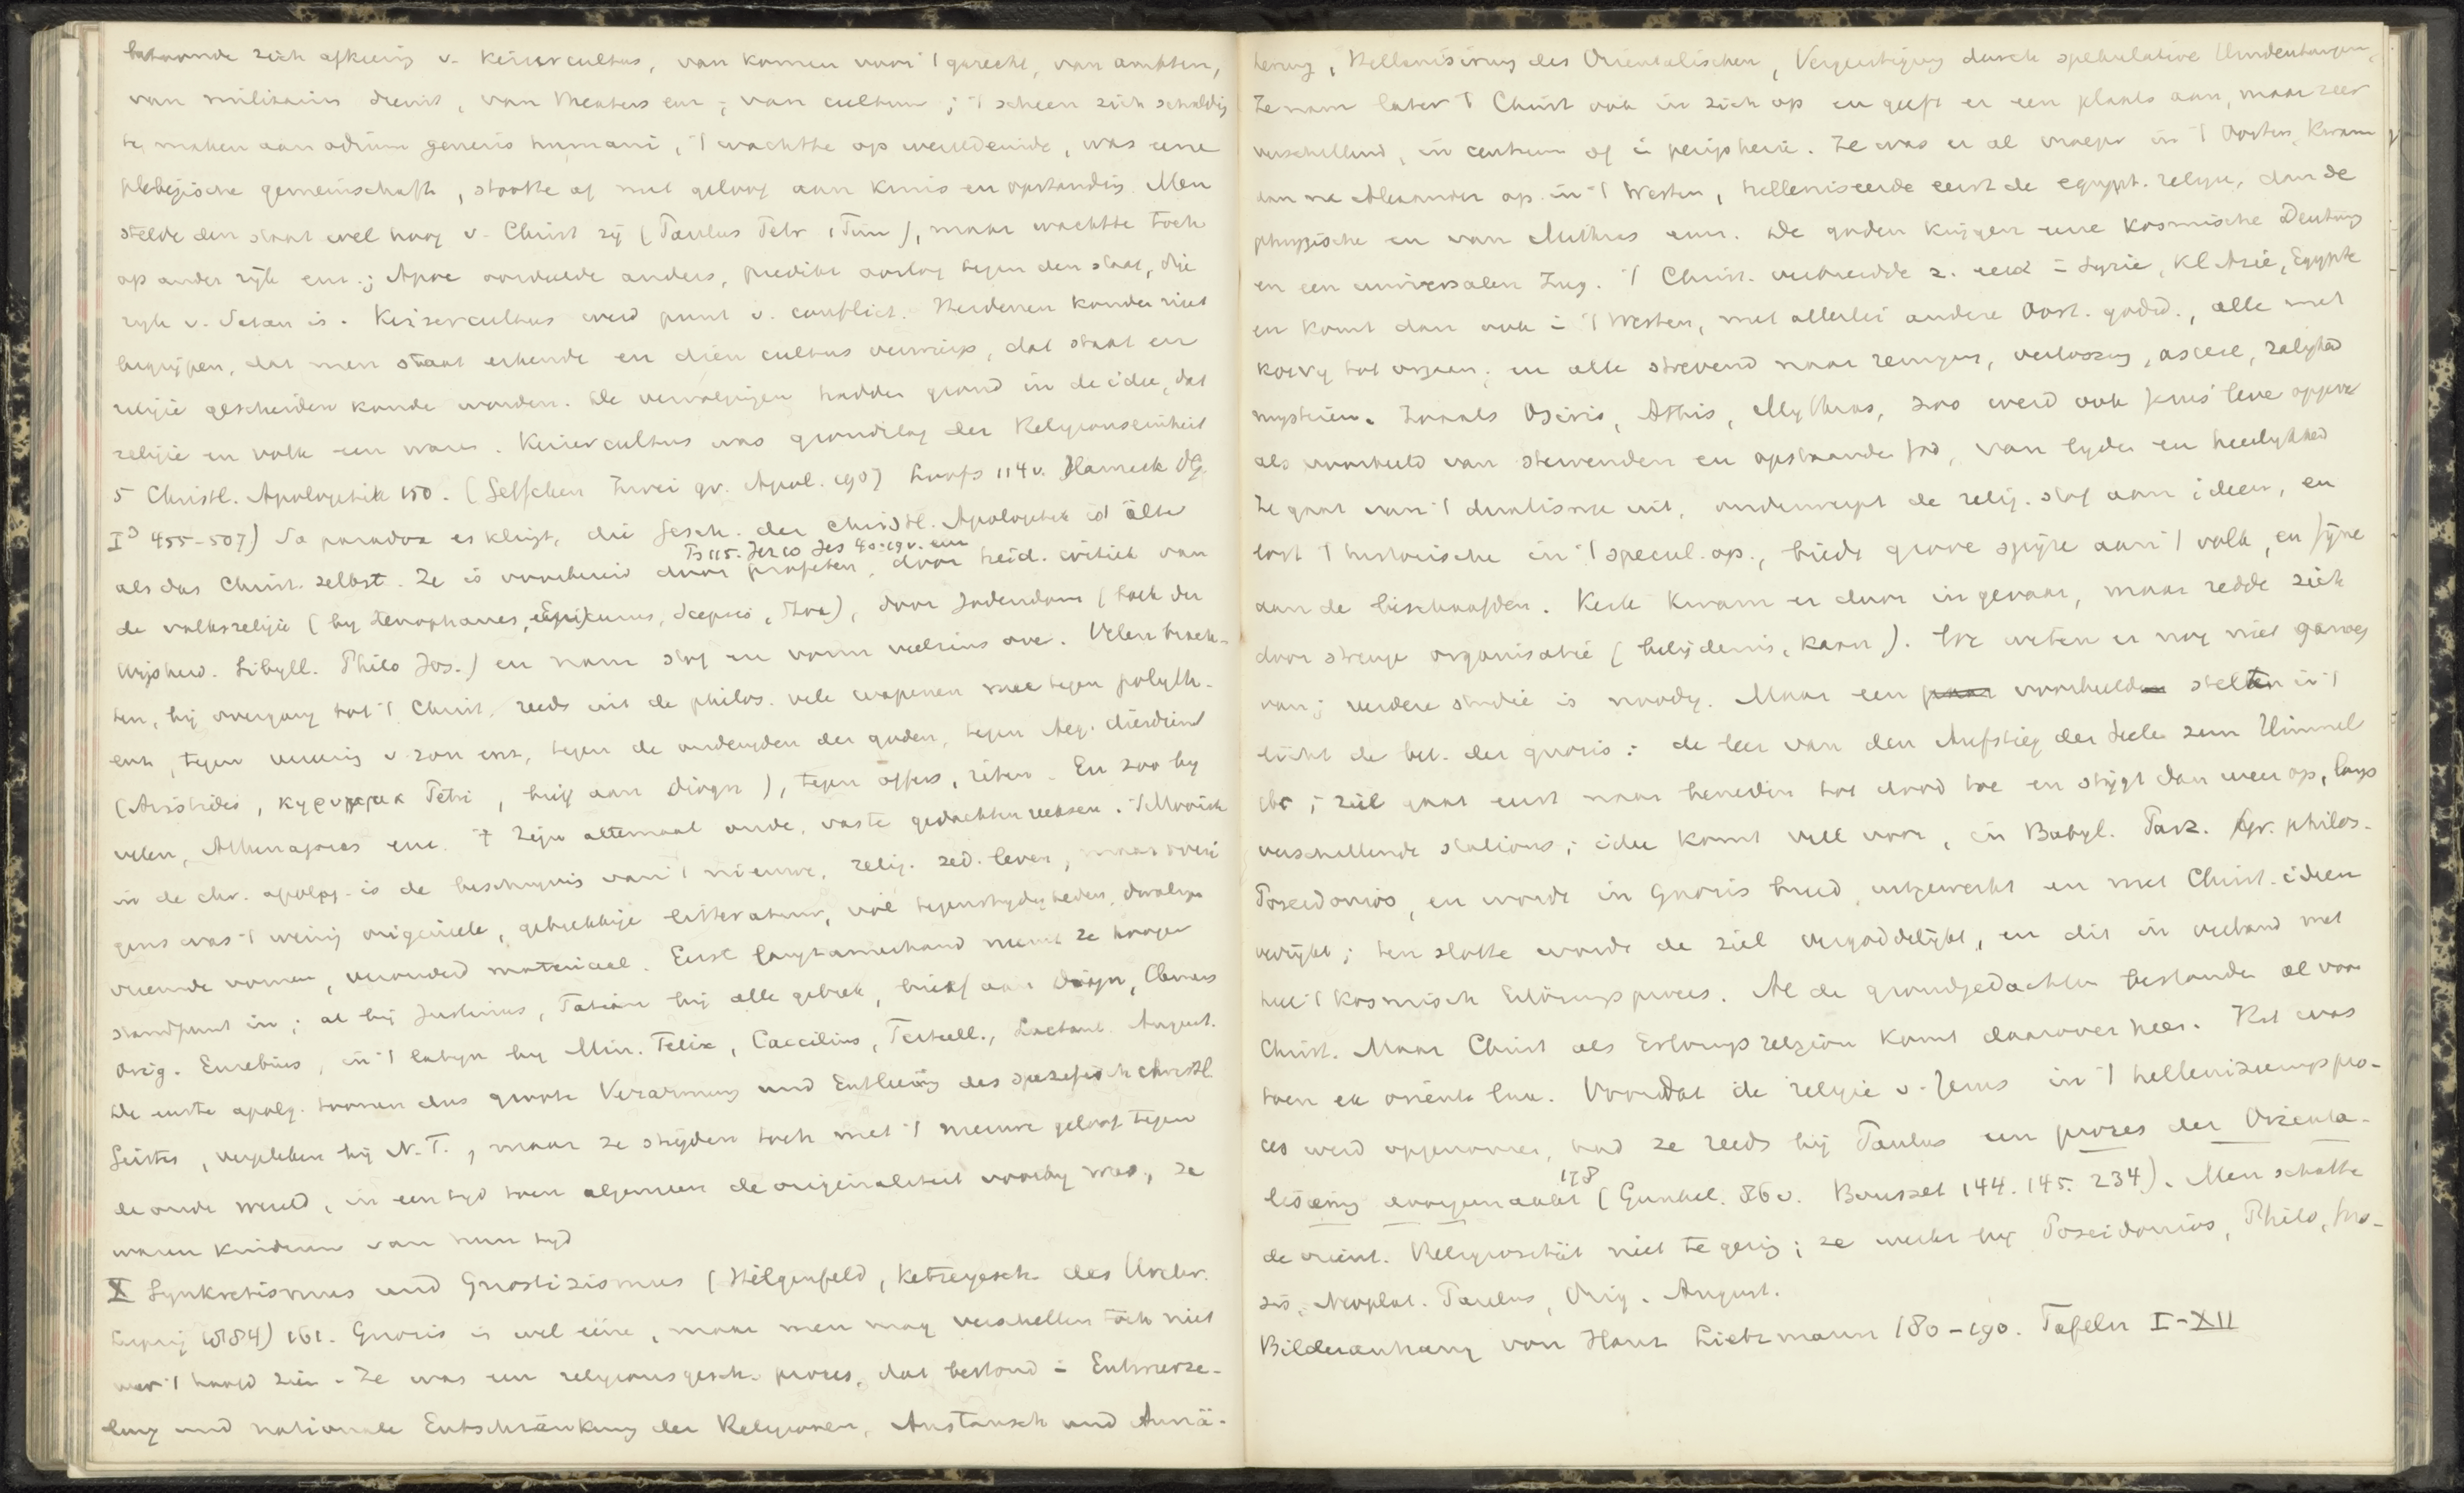 betoonde zich afkeerig v. keizercultus, van komen voor 't gerecht, van ambten,
van militairen dienst, van theaters enz; van cultuur; 't scheen zich schuldig
te maken aan odium generis humani, 't wachtte op wereldeinde, was eene
plebejische gemeinschaft, stootte af met geloof aan kruis en opstanding. Men
stelde den staat wel hoog v. Christ zij (Paulus Petr 1 Tim), maar wachtte toch
op ander rijk enz.; Apoc oordeelde anders, predikt oorlog tegen den staat, die
rijk v. Satan is. Keizercultus werd punt v. conflict. Heidenen konden niet
begrijpen, dat men staat erkende en dien cultus verwierp, dat staat en
religie gescheiden konde worden. De vervolgingen hadden grond in de idee, dat
religie en volk een waren. Keizercultus was grondslag der Religionseinheit
5 Christl. Apologetik 150. (Geffcken Zwei gr. Apol. 1907 Loofs 114 v. Harnack DG
I³ 455-507) So paradox es klingt, die Gesch. der christl. Apologetik ist älter
Ps 115. Jer 10 Jes 40:19 v. enz
als das Christ. selbst. Ze is voorbereid door profeten, door heid. critiek van
de volksreligie (by Xenophanes, Epicurus, Scepsis, Stoa), door Jodendom (boek der
Wijsheid. Sibyll. Philo Jos.) en nam stof en vorm veelzins over. Velen brach-
ten, bij overgang tot 't Christ. reeds uit de philos. vele wapenen mee tegen polyth.
enz, tegen vereering v. zon enz, tegen de ondeugden der goden, tegen Aeg. dierdienst
(Aristides, κηρυγμα Petri, brief aan Diogn), tegen offers, riten. En zoo by
velen, Athenagoras enz. 't Zijn altemaal oude, vaste gedachtenreeksen. 't Mooiste
in de chr. apolog. is de beschrijving van 't nieuwe, relig. zed. leven, maar overi
gens was 't weinig origineele, gebrekkige litteratuur, vol tegenstrijdigheden, dwalingen
vreemde vormen, verouderd materiaal. Eerst langzamerhand neemt ze hooger
standpunt in; al bij Justinus, Tatian bij alle gebrek, brief aan Diogn, Clemens
Orig. Eusebius, in 't latijn by Min. Felix, Caecilius, Tertull., Lactant. August.
De eerste apolog. toonen dus groote Verarmung und Entleerung des spezifisch christl.
Geistes, vergeleken bij N.T., maar ze strijden toch met 't nieuwe geloof tegen
de oude wereld, in een tijd toen algemeen de originaliteit voorbij was, ze
waren kinderen van hun tijd
X Synkretismus und Gnostizismus (Hilgenfeld, Ketzergesch. des Urchr.
Leipzig 1884) 161. Gnosis is wel eene, maar men mag verschillen toch niet
over 't hoofd zien. Ze was een religionsgesch. proces, dat bestond = Entwurze-
lung und nationale Entschränkung der Religionen, Austausch und Annä-
herung, Hellenisirung des Orientalischen, Vergeistigung durch spekulative Umdeutungen
Ze nam later 't Christ ook in zich op en geeft er een plaats aan, maar zeer
verschillend, in centrum of in peripherie. Ze was er al vroeger in 't Oosten, kwam
dan na Alexander op in 't Westen, helleniseerde eerst de egypt. religie, dan de
phrygische en van Mithras enz. De goden krijgen eene kosmische Deutung
en een universalen Zug. 't Christ. verbreidde z. eerst = Syrie, Kl Azie, Egypte
en komt dan ook = 't Westen, met allerlei andere Oost. godsd., alle met
neiging tot ; en alle strevend naar reiniging, verlossing, ascese, zaligheid
mysteriën. Zooals Osiris, Attis, Mythras, zoo werd ook Jezus' leven opgevat
als voorbeeld van stervenden en opstaanden god, van lijden en heerlijkheid
Ze gaat van 't dualisme uit, onderwerpt de relig. stof aan ideeen, en
lost 't historische in 't specul. op, biedt grove spijze aan 't volk, en fijne
aan de beschaafden. Kerk kwam er door in gevaar, maar redde zich
door strenge organisatie (belijdenis, kanon). We weten er nog niet genoeg
van; verdere studie is noodig. Maar een voorbeeld stelt in 't
licht de bet. der gnosis: de leer van den Aufstieg der Seele zum Himmel
; ziel gaat eerst naar beneden tot dood toe en stijgt dan weer op, langs
verschillende stations; idee komt veel voor, in Babyl. Parz. Gr. philos.
Poseidonios, en wordt in Gnosis breed uitgewerkt en met Christ. ideen
verrijkt; ten slotte wordt de ziel vergoddelijkt, en dit in verband met
heel 't kosmisch Erlösungsproces. Al de grondgedachten bestonden al voor
Christ. Maar Christ als Erlösungsreligion komt daarover heen. Het was
toen ex oriente lux. Voordat de religie v. Jezus in 't helleniseeringspro-
ces werd opgenomen, had ze reeds bij Paulus een prozes der Orienta-
178
lisering doorgemaakt (Gunkel. 86 v. Bousset 144. 145. 234). Men schatte
de orient. Religiosität niet te gering; ze werkt bij Poseidonios, Philo, Gno-
sis, Neoplat. Paulus, Orig. August.
Bilderanhang von Hans Lietzmann 180-190. Tafeln I-XII